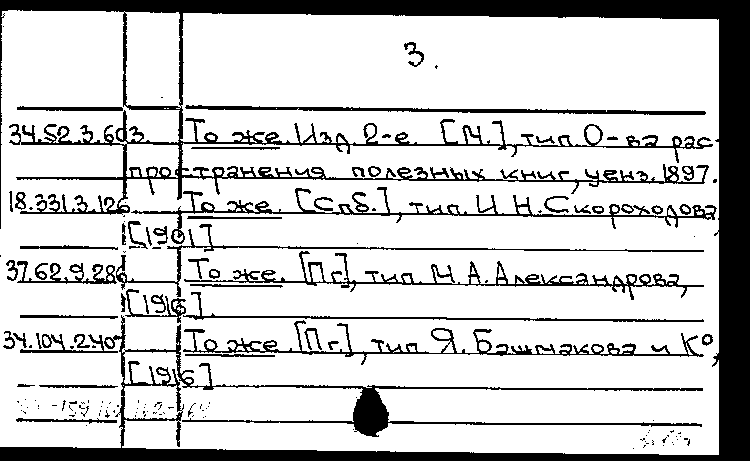 3.
34.52.3.603. То же. Изд. 2-е. [М.], тип. О-ва рас-
пространения полезных книг, ценз. 1897.
18.331.3.126. То же. [Спб.], тип. И. Н. Скороходова,
[1901]
37.62.9.286. То же. [Пг.], тип. М. А. Александрова,
[1916].
34.104.2.40 То же. [Пг.], тип. Я. Башмакова и К°,
[1916]